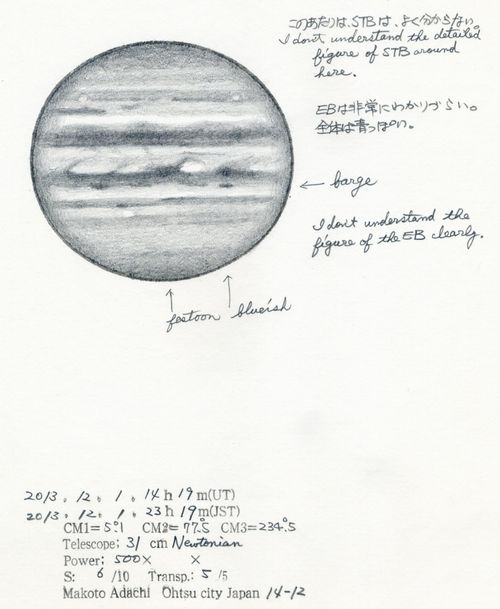 このあたりは、STBは、よく分からない。
I don't understand the detailed
figure of STB around
here.
EBは非常にわかりづらい。
全体は青っぽい。
← barge
I don't understand the
figure of the EB clearly.
festoon blueish
2013. 12. 1. 14h 19m(UT)
2013. 12. 1. 23h 19m(JST)
CM1= 5°.1 CM2= 77°.5 CM3= 234°.5
Telescope; 31 cm Newtonian
Power; 500× ×
S: 6 /10 Transp.: 5 /5
Makoto Adachi Ohtsu city Japan 14-12